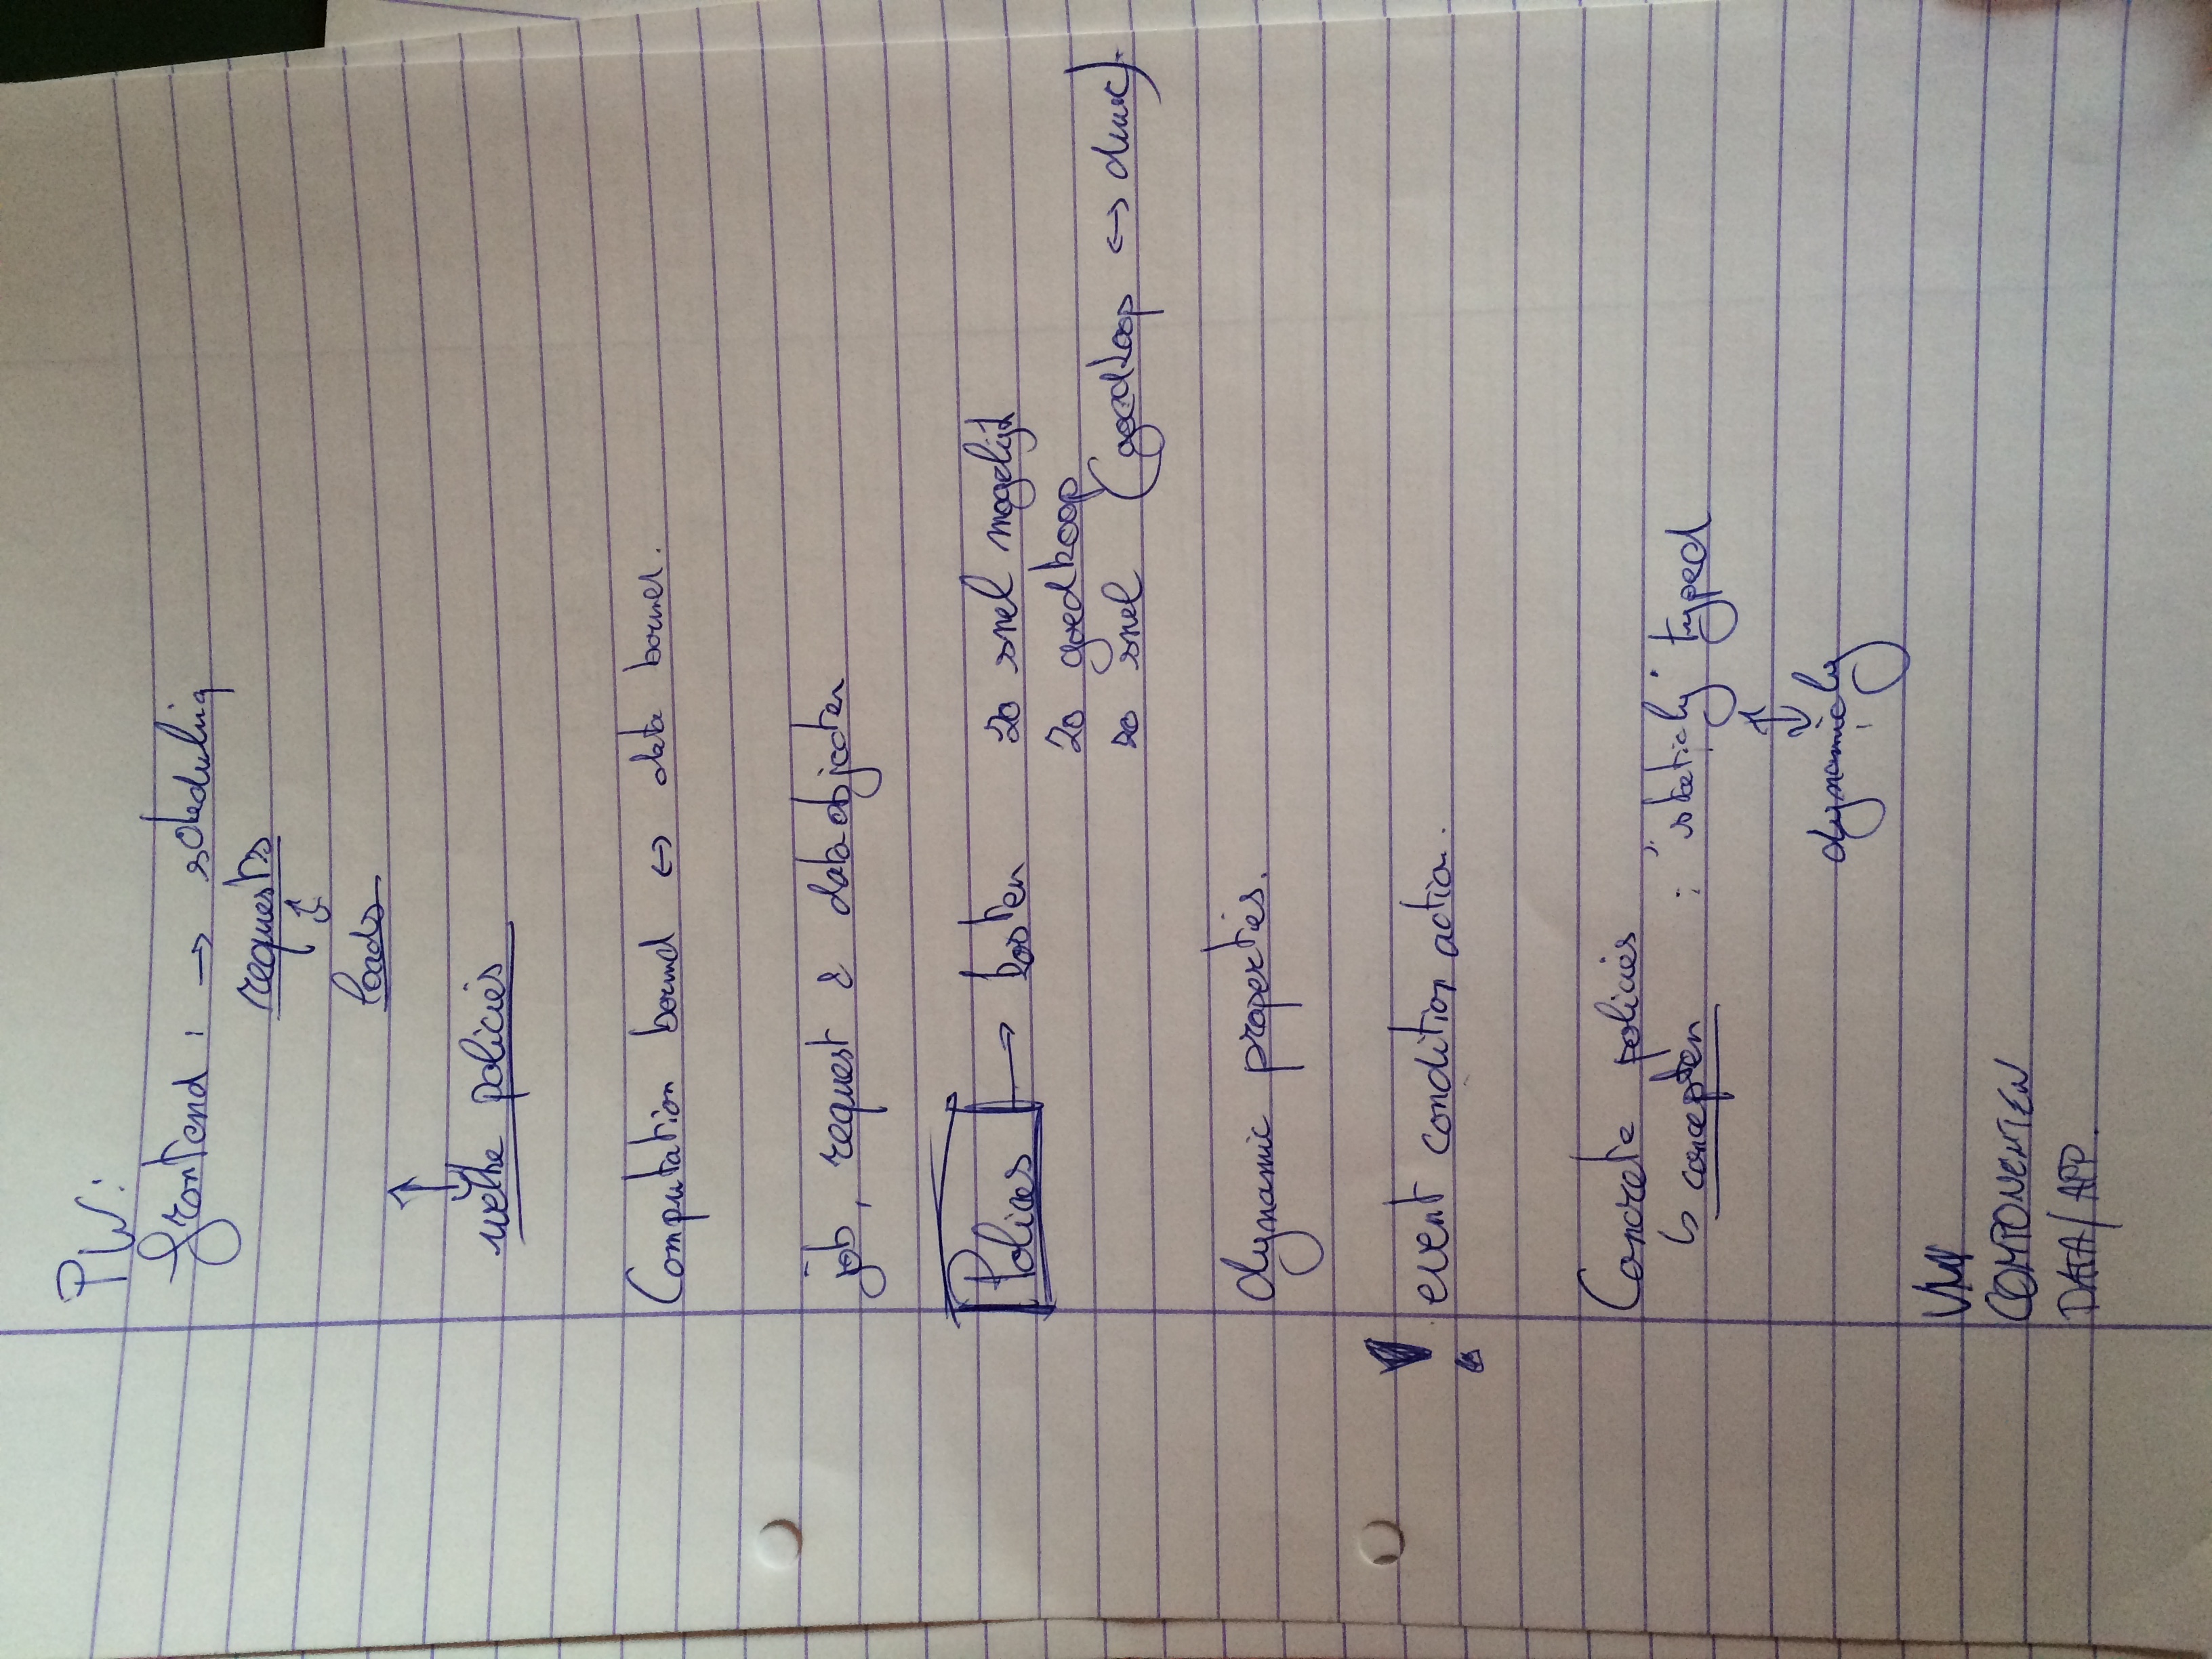 PW:
frontend : → scheduling
requests
↕
loads
↕
welke policies
Computation bound ↔ data bound.
job, request & data objecten
Policies → kosten zo snel mogelijk
zo goedkoop
zo snel (goedkoop ↔ duur).
dynamic properties.
event condition action.
Concrete policies
↳ concepten : statichy typed
↕
dynamichy
VM
COMPONENTEN
DATA/APP.